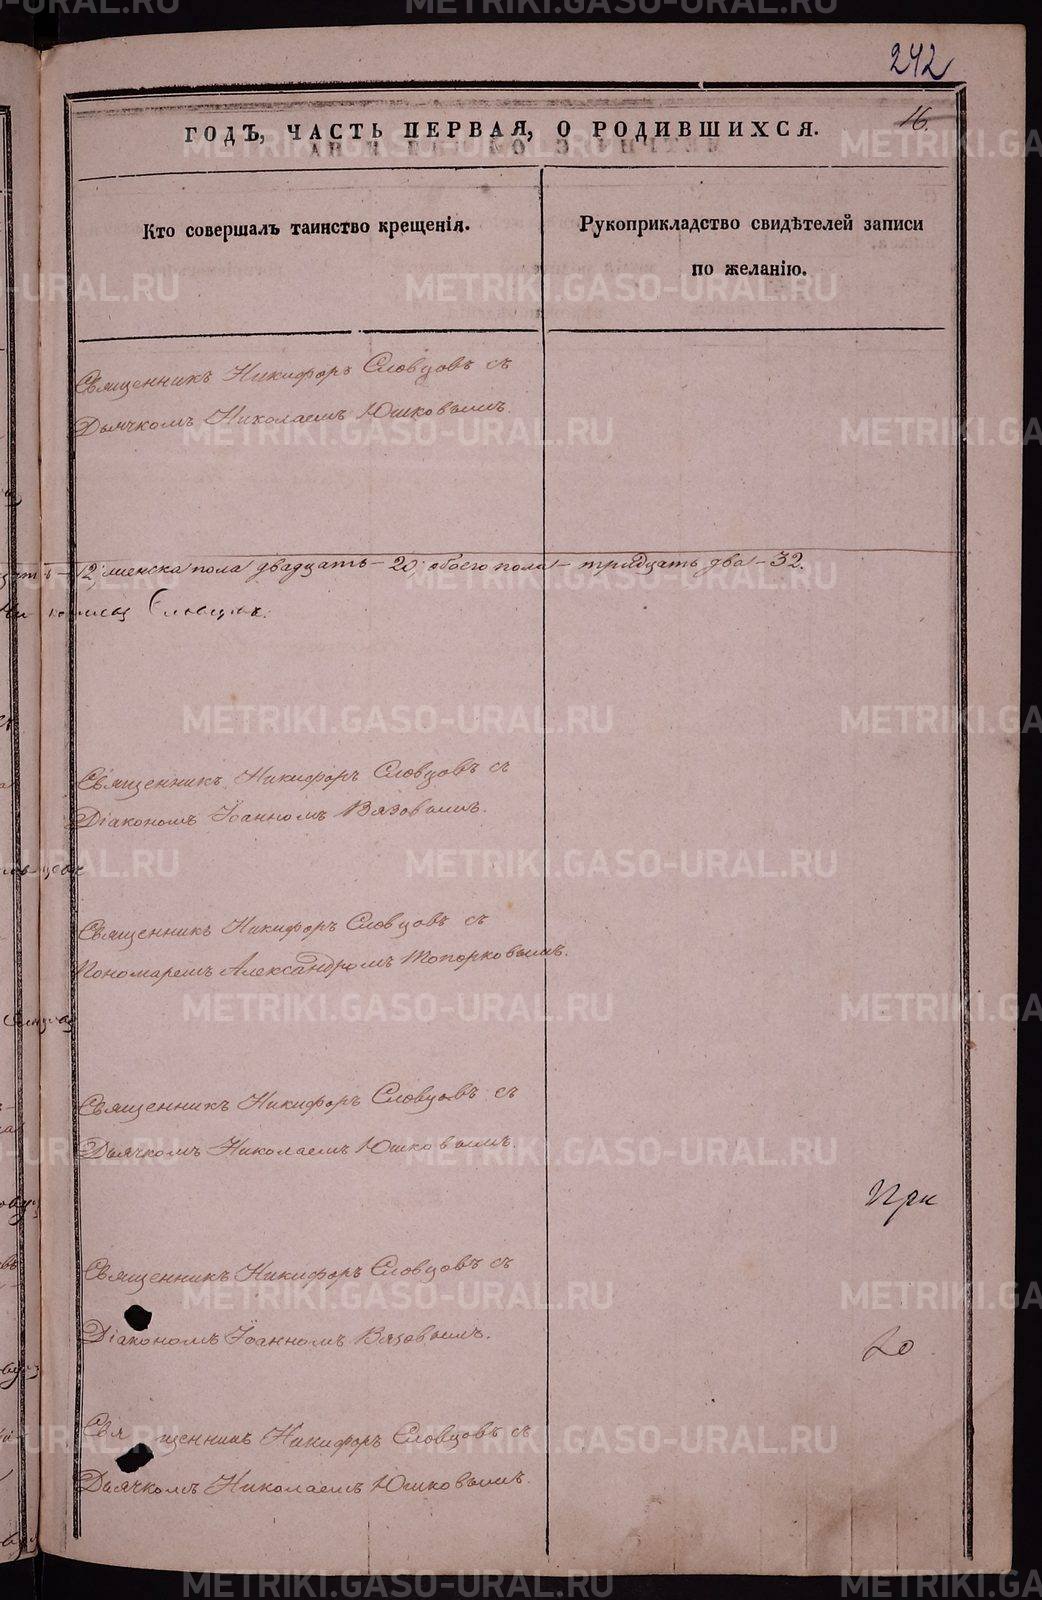 242
16.
ГОДЪ, ЧАСТЬ ПЕРВАЯ, О РОДИВШИХСЯ.
Кто совершалъ таинство крещенія.
Рукоприкладство свидѣтелей записи
по желанію.
Священникъ Никифоръ Словцовъ съ
Дьячкомъ Николаемъ Юшковымъ.
12, женска пола двадцать – 20, обоего пола – тридцать два – 32.
Словцовъ.
Священникъ Никифоръ Словцовъ съ
Діакономъ Іоанномъ Вязовымъ.
Священникъ Никифоръ Словцовъ съ
Пономаремъ Александромъ Топорковымъ.
Священникъ Никифоръ Словцовъ съ
Дьячкомъ Николаемъ Юшковымъ.
Священникъ Никифоръ Словцовъ съ
Діакономъ Іоанномъ Вязовымъ.
20
Священникъ Никифоръ Словцовъ съ
Дьячкомъ Николаемъ Юшковымъ.
METRIKI.GASO-URAL.RU